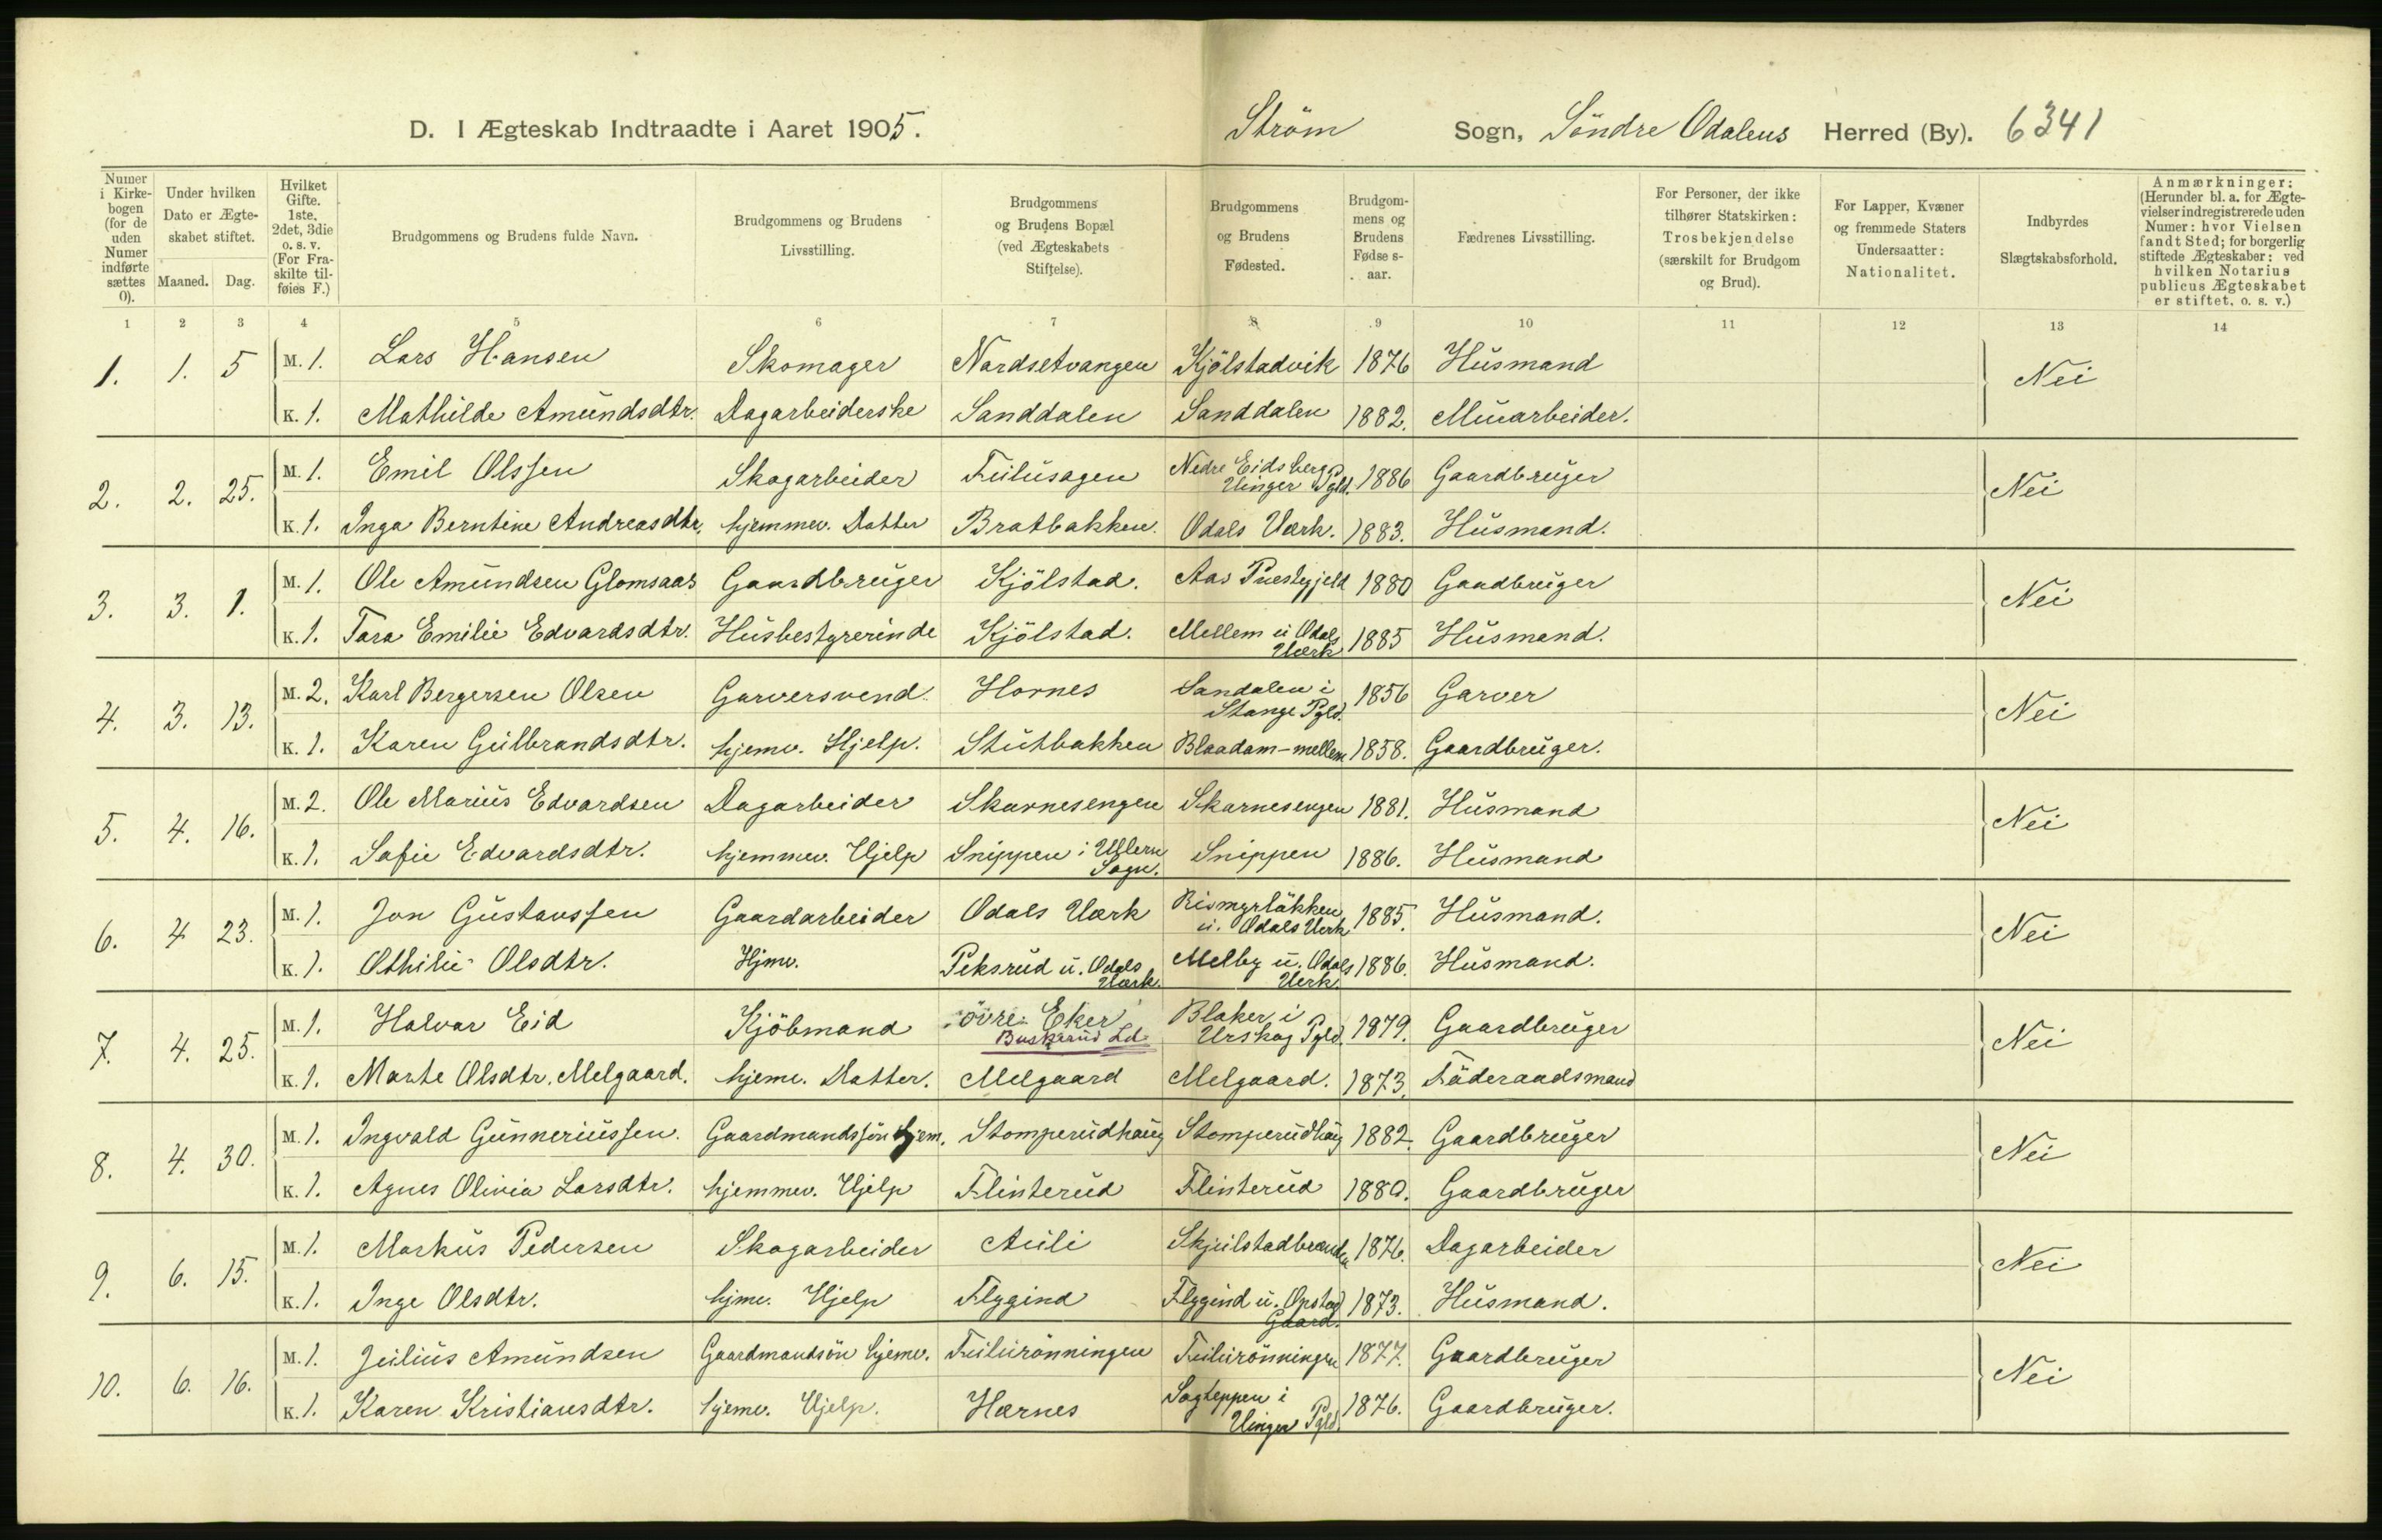 D. I Ægteskab Indtraadte i Aaret 1905. Ström Sogn, Söndre Odalens Herred (By). 6341
Numer i Kirke-bogen (for de uden Numer indførte sættes 0). Under hvilken Dato er Ægte-skabet stiftet. Maaned. Dag. Hvilket Gifte. 1ste, 2det, 3die o. s. v. (For Fra-skilte til-føies F.) Brudgommens og Brudens fulde Navn. Brudgommens og Brudens Livsstilling. Brudgommens og Brudens Bopæl (ved Ægteskabets Stiftelse). Brudgommens og Brudens Fødested. Brudgom-mens og Brudens Fødse s-aar. Fædrenes Livsstilling. For Personer, der ikke tilhører Statskirken: Trosbekjendelse (særskilt for Brudgom og Brud). For Lapper, Kvæner og fremmede Staters Undersaatter: Nationalitet. Indbyrdes Slægtskabsforhold. Anmærkninger: (Herunder bl. a. for Ægte-vielser indregistrerede uden Numer: hvor Vielsen fandt Sted; for borgerlig stiftede Ægteskaber: ved hvilken Notarius publicus Ægteskabet er stiftet, o. s. v.)
1 2 3 4 5 6 7 8 9 10 11 12 13 14
1. 1. 5 M. 1. Lars Hansen Skomager Nordsetvangen Kjölstadvik 1876 Husmand Nei
K. 1. Mathilde Amundsdtr. Dagarbeiderske Sanddalen Sanddalen 1882. Muarbeider.
2. 2. 25. M. 1. Emil Olssen Skogarbeider Fulusagen Nedre Eidsberg Vinger Pgld. 1886 Gaardbruger Nei
K. 1. Inga Berntine Andreasdtr. hjemmev. Datter Bratbakken. Odals Værk. 1883. Husmand.
3. 3. 1. M. 1. Ole Amundsen Glomsaas Gaardbruger Kjölstad. Aas Prestegjeld 1880 Gaardbruger Nei
K. 1. Tara Emilie Edvardsdtr. Husbestyrerinde Kjölstad. Mellem u Odals Værk 1885 Husmand.
4. 3. 13. M. 2. Karl Bergersen Olsen Garversvend Hornes Sandalen i Stange Pgld. 1856 Garver Nei
K. 1. Karen Gulbrandsdtr. hjemv. Hjelp. Stutbakken Blaadam-mellem 1858. Gaardbruger.
5. 4. 16. M. 2. Ole Marius Edvardsen Dagarbeider Skarnesengen Skarnesengen 1881. Husmand Nei
K. 1. Safie Edvardsdtr. hjemmev. Hjelp Snippen i Ullern Sogn. Snippen 1886. Husmand
6. 4 23. M. 1. Jon Gustavssen Gaardarbeider Odals Værk Rismyrløkken u. Odals Værk 1885. Husmand. Nei
K. 1. Othilie Olsdtr. Hjmv. Peksrud u. Odals Værk. Melby u. Odals Værk. 1886. Husmand.
7. 4. 25. M. 1. Halvor Eid Kjöbmand övre Eker Buskerud Ld Blaker i Urskog Pgld. 1879. Gaardbruger Nei
K. 1. Marte Olsdtr. Melgaard. hjemv. Datter. Melgaard Melgaard. 1873. Föderaadsmand
8. 4. 30. M. 1. Ingvald Gunneriussen. Gaardmandssön hjem. Stomperudhaug Stomperudhaug 1882. Gaardbruger Nei
K. 1. Agnes Olivia Larsdtr. hjemmev. Hjelp Flinterud Flinterud 1880. Gaardbruger
9. 6. 15. M. 1. Markus Pedersen Skogarbeider Auli Skjulstadbrenden 1876. Dagarbeider Nei
K. 1. Inge Olsdtr. hjmv. Hjelp Flygind Flygind u. Opstad Gaard. 1873. Husmand.
10. 6. 16. M. 1. Julius Amundsen Gaardmandsön hjemv. Fulurönningen Fulurönningen 1877. Gaardbruger Nei
K. 1. Karen Kristiansdtr. hjemv. Hjelp. Hærnes Sagteppen i Vinger Pgld. 1876. Gaardbruger.